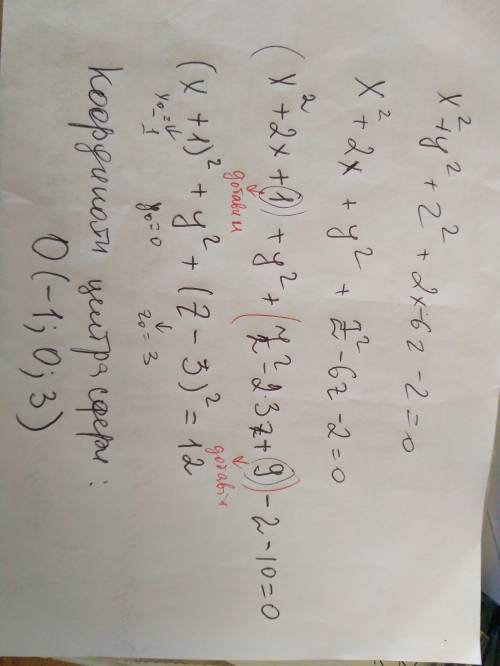 x² + y² + z² + 2x - 6z - 2 = 0
x² + 2x + y² + z² - 6z - 2 = 0
(x² + 2x + 1) + y² + (z² - 2·3z + 9) - 2 - 10 = 0
додавали додавали
(x + 1)² + y² + (z - 3)² = 12
x₀ = -1 y₀ = 0 z₀ = 3
Координати центра сфери:
O(-1; 0; 3)